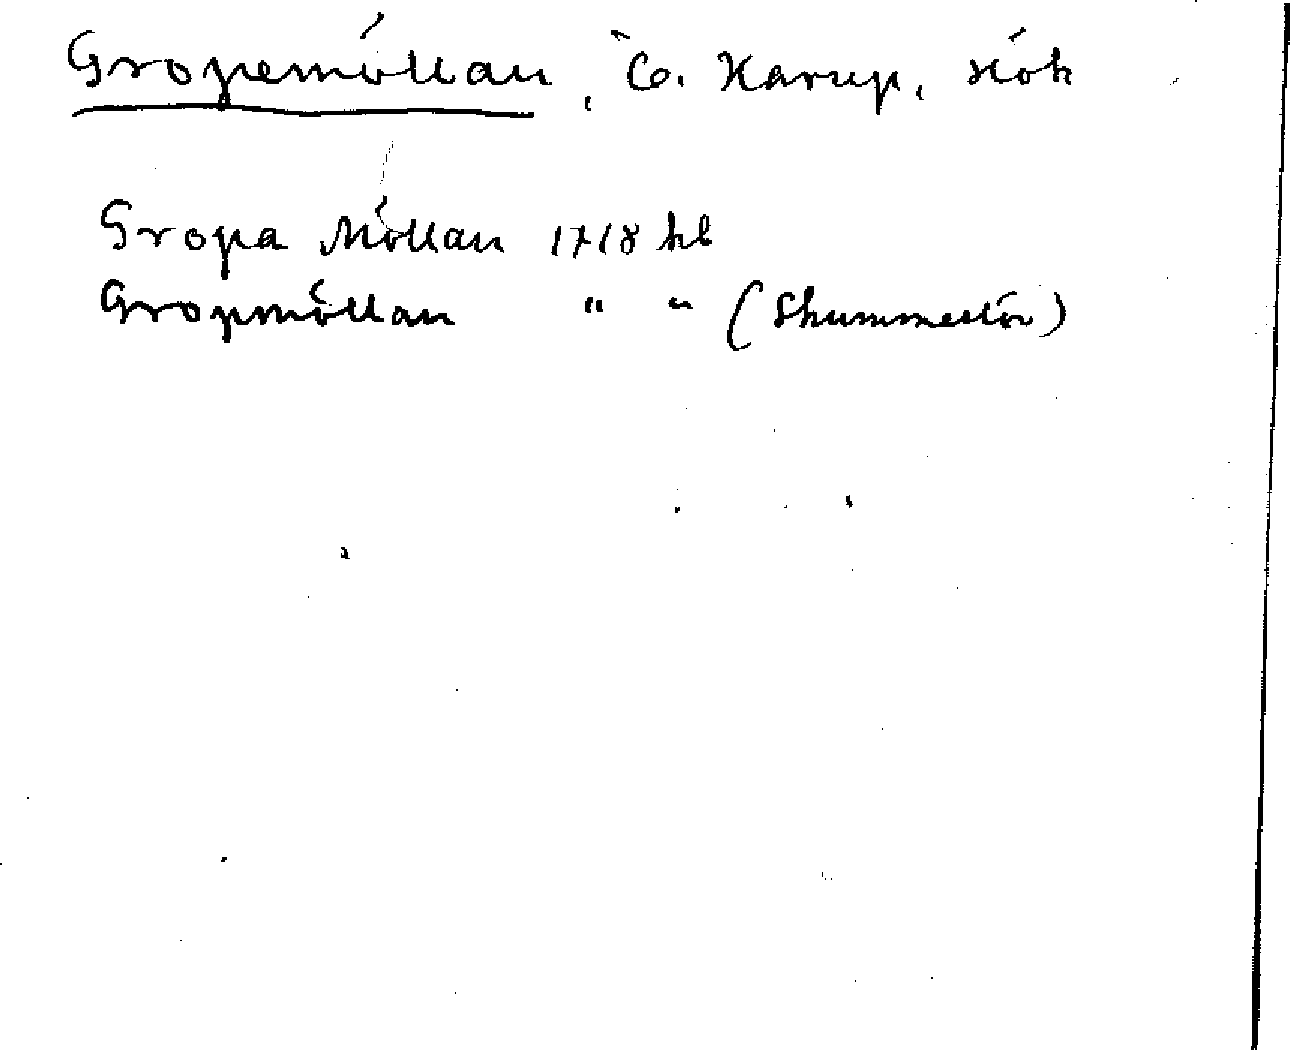 Gropemöllan, Ö. Karup, Hök
Gropa Möllan 1718 kb
Gropmöllan " " (Skummeslöv)